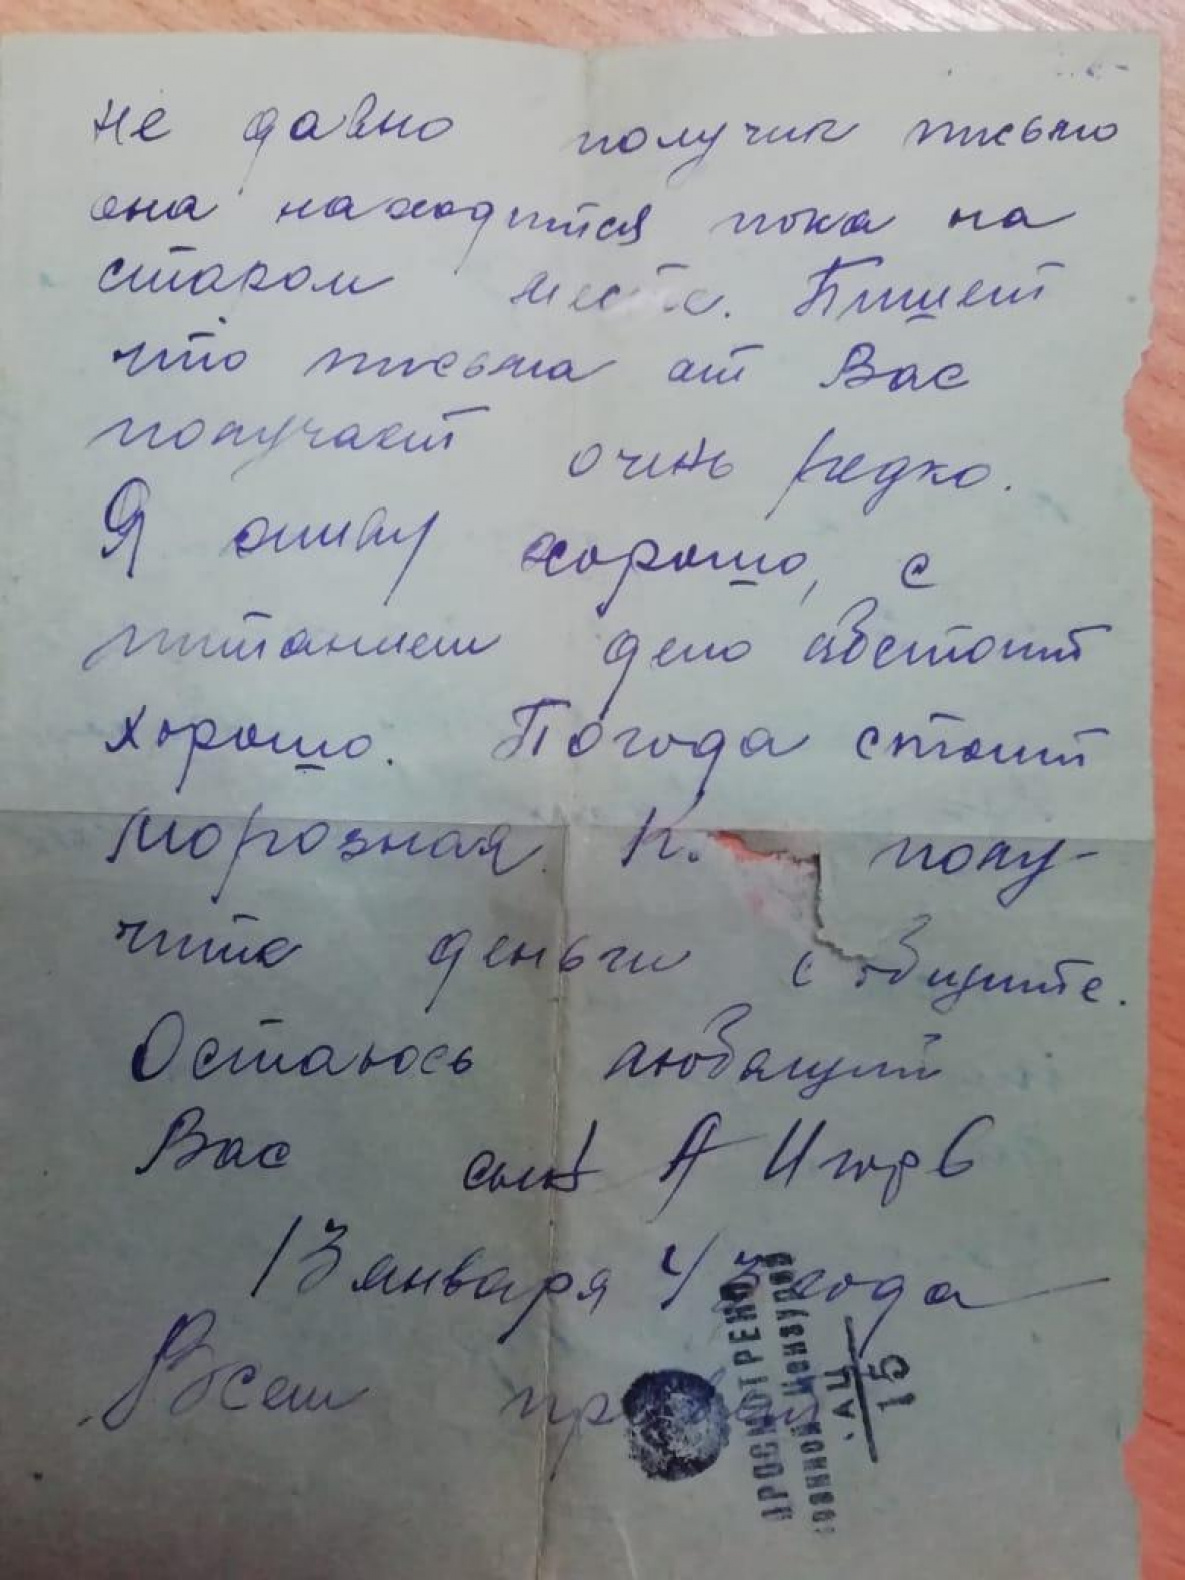 не давно получил письмо
она находится пока на
старом месте. Пишет
что письма от Вас
получает очень редко.
Я живу хорошо, с
питанием дело обстоит
хорошо. Погода стоит
морозная. К. полу-
чите деньги сообщите.
Остаюсь любящий
Вас сын А Игорь
13 января 43 года
Всем
ПРОСМОТРЕНО
Военной Цензурой
15